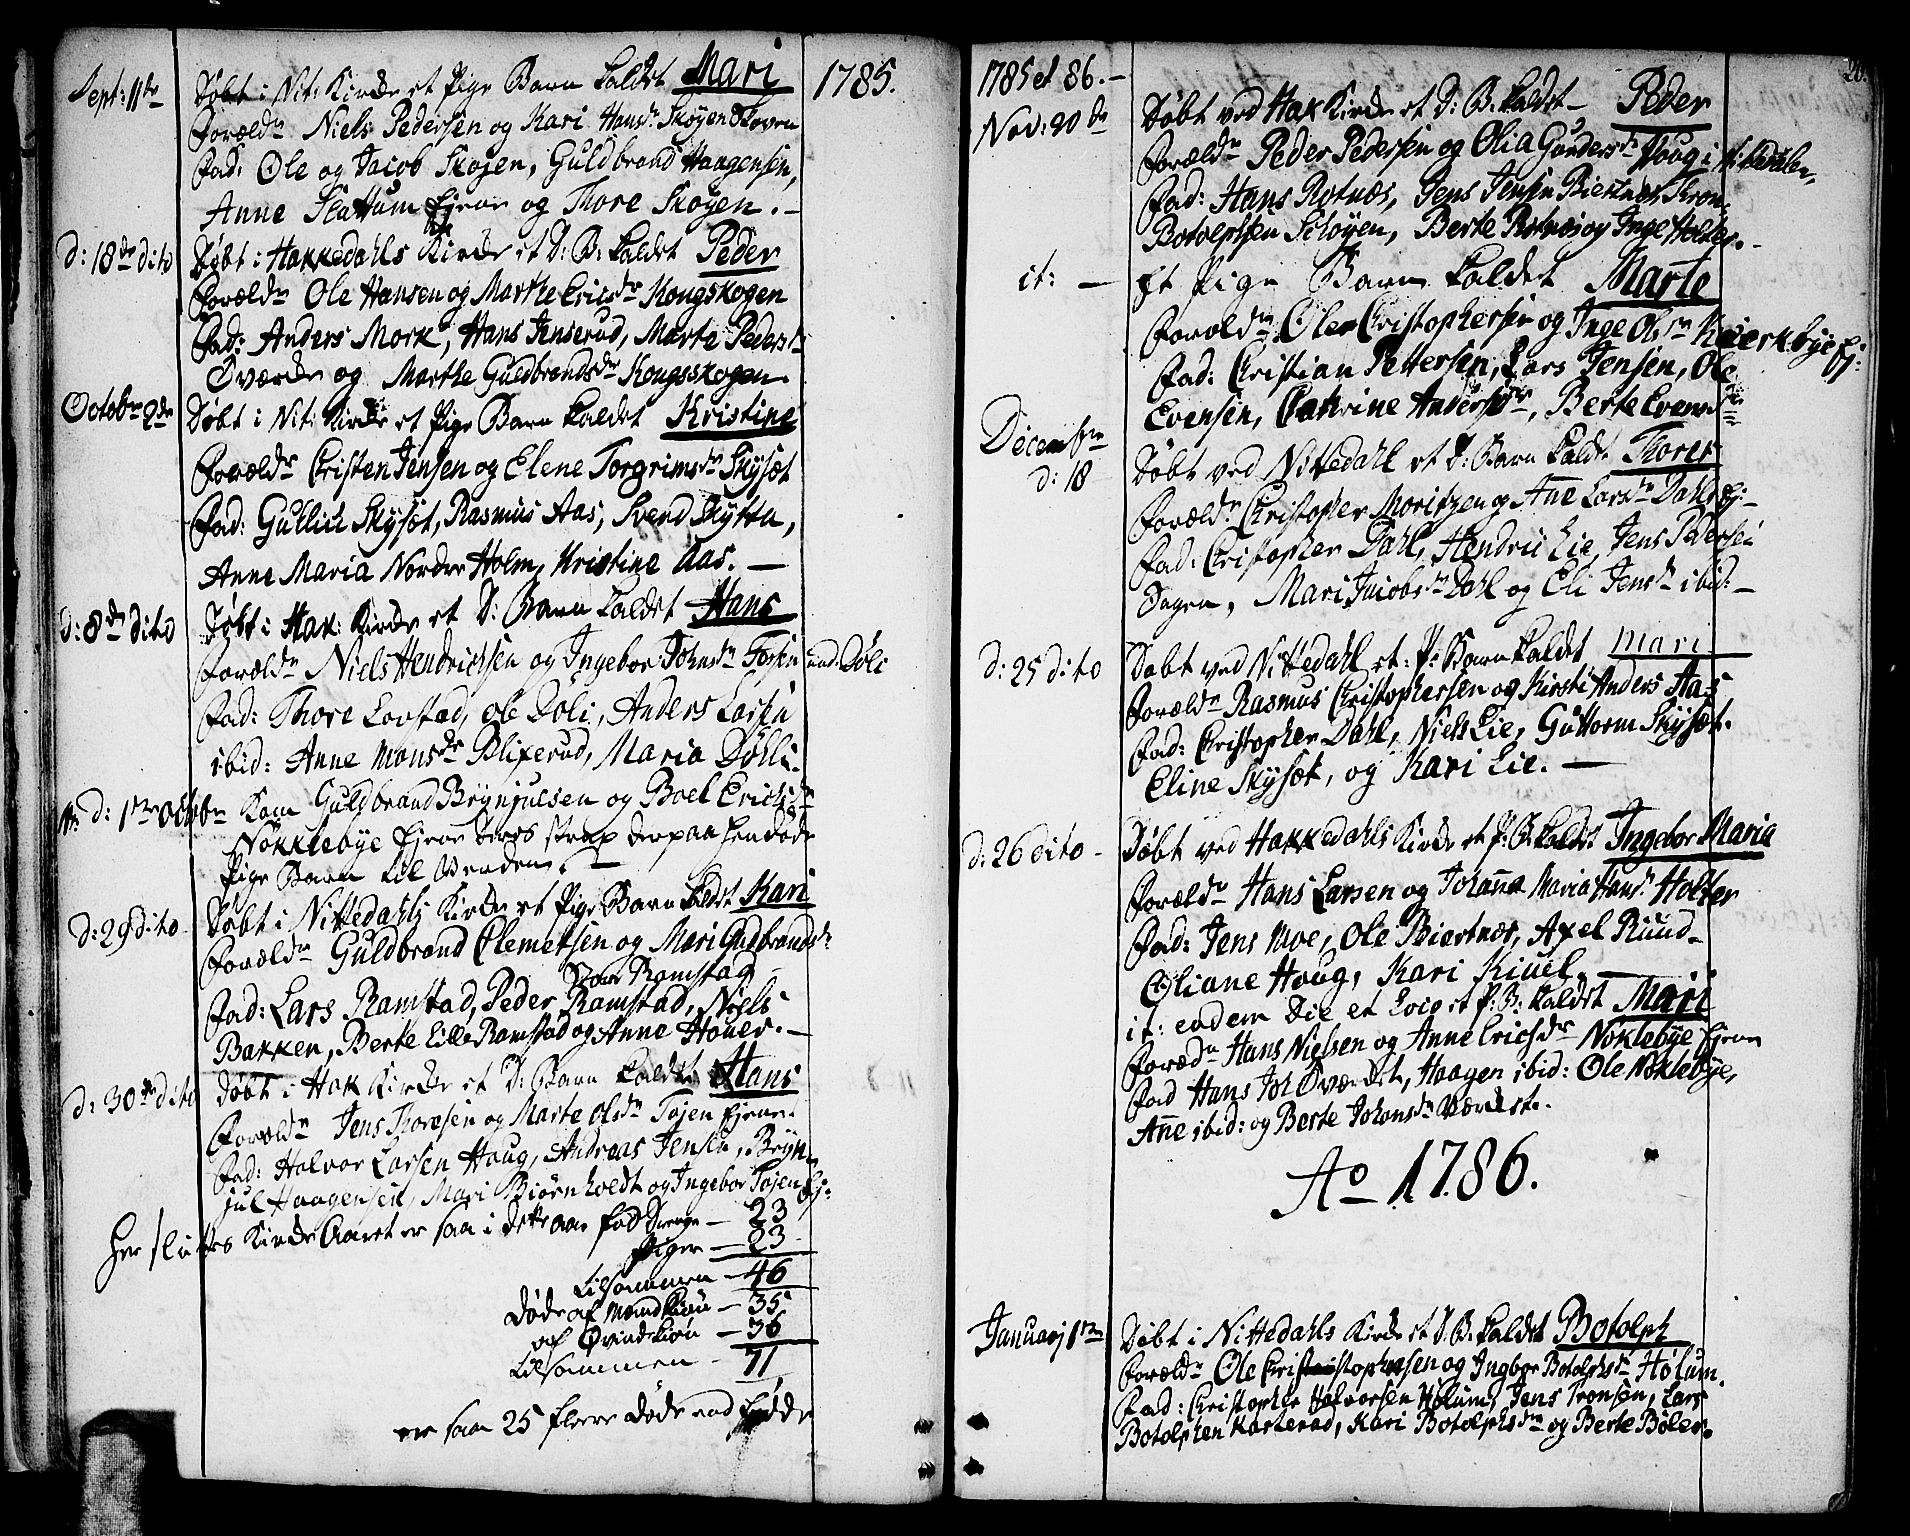 1785.
Sept: 11te Døbt i Nit: Kirche et Pige Barn kaldet Mari
Foreldrn Niels Pedersen og Kari Hansdr Skøyen Skoven
Fad: Ole og Jacob Skøyen, Guldbrand Haagensen,
Anne Slattum Eyere og Thore Skøyen.-
d: 18de dito Døbt i Hakkedahls Kirche et D: B: kaldet Peder
Foreldrn Ole Hansen og Marthe Ericsdr Kongskogen
Fad: Anders Mork, Hans Jenserud, Marte Pedersdr
Øværde og Marthe Guldbrandsdr Kongsskogen
Octobr 2de Døbt i Nit: Kirche et Pige Barn kaldet Kristine
Forældr Christen Jensen og Elene Torgrimsdr Skysæt
Fad: Gullich Skysæt, Rasmus Aas, Svend Skytta,
Anne Maria Nordre Holm, Kristine Aas. —
d: 8de dito Døbt i Hak: Kirche et D: Barn kaldet Hans
Forældrn Niels Hendrichsen og Ingebor Johnsdr Tøsen und: Døli
Fad: Thore Lovstad, Ole Døli, Anders Larsen
ibid: Anne Monsdr Blixerud, Maria Døhli.
d: 1te Octobr Kom Guldbrand Brynjulsen og Boel Erichsdr
Nøkklebye Eyere Deres strax derpaa hendøde
Pige Barn til Verden. —
d: 29 dito Døbt i Nittedahls Kirche et Pige Barn kaldet Kari
Forældrn Guldbrand Clemetsen og Mari Guldbrandsdr
Store Ramstad
Fad: Lars Ramstad, Peder Ramstad, Niels
Bakken, Berte Lille Ramstad og Anne Høuer.-
d: 30te dito Døbt i Hak Kirche et D: Barn kaldet Hans
Forældrn Jens Thoresen og Marte Olsdr Tøjen Eyere.
Fad: Halvor Larsen Houg, Andreas Jensen, Bryn-
jul Haagensen, Mari Biørnholdt og Ingebor Tøjen Ej:
Her sluttes Kirche Aaret er saa i dette aar fød Drenge — 23
Piger — 23
Tilsammen — 46
Døde af Mandkiøn — 35
af Qvindekiøn — 36
Tilsammen — 71
er saa 25 flere døde end fødde
1785 et 86.-
20.
Nov: 20de Døbt ved Hak Kirche et D: B: kaldet — Peder
Forældrn Peder Pedersen og Olia Gundersdr Houg i
Fad: Hans Rotnæs, Jens Jensen Biertnæs, Kron
Botolphsen Schøyen, Berte Rotnæs og Inge Holter.-
it: — Et Pige Barn kaldet Marte
Foroldrn Ole Christophersen og Inge Olsdr Kværkbye Ej:
Fad: Christian Pettersen, Lars Jensen, Ole
Evensen, Cathrine Andersdr, Berte Evensdr
Decembr d: 18 Døbt ved Nittedahl et D: Barn kaldt Thorer
Forældr Christopher Moritzen og Ane Larsdr Dahls Ej-
Fad: Christopher Dahl, Hendric Lie, Jens Pedersen
Dagen, Mari Jacobsdr Dahl og Eli Jensdr ibid: —
d: 25 dito Døbt ved Nittedahl et: P: Barn kaldet Mari
Forældrn Rasmus Christophersen og Kirsti Anders Aas
Fad: Christopher Dahl, Niels Lie, Guttorm Skysæt.
Eline Skysæt, og Kari Lie. —
d: 26 dito - Døbt ved Hakkedahls Kirche et P: B: kaldet Ingebor Maria
Forældrn Hans Larsen og Johanna Maria Hansdr Holter
Fad: Jens Moe, Ole Biertnæs, Axel Ruud-
Oliane Houg, Kari Kiuel. —
it: eadem Die et Loco et P: B: kaldet Mari
Forædrn Hans Nielsen og Anne Ericsdr Nøklebye Eyere
Fad Hans Joh Øværdet, Haagen ibid: Ole Nøklebye,
Añe ibid: og Berte Johansdr Værdet.
Ao 1786.
Januarj 1te Døbt i Nittedahls Kirche et D: B: kaldet Botolph
Forældrn Ole Christophersen og Ingbor Botolphsdr Hølum.
Fad: Christopher Halvorsen Hølum, Jens Tronsen, Lars
Botolphen Karterad, Kari Botolphsdr og Berte Bøler.